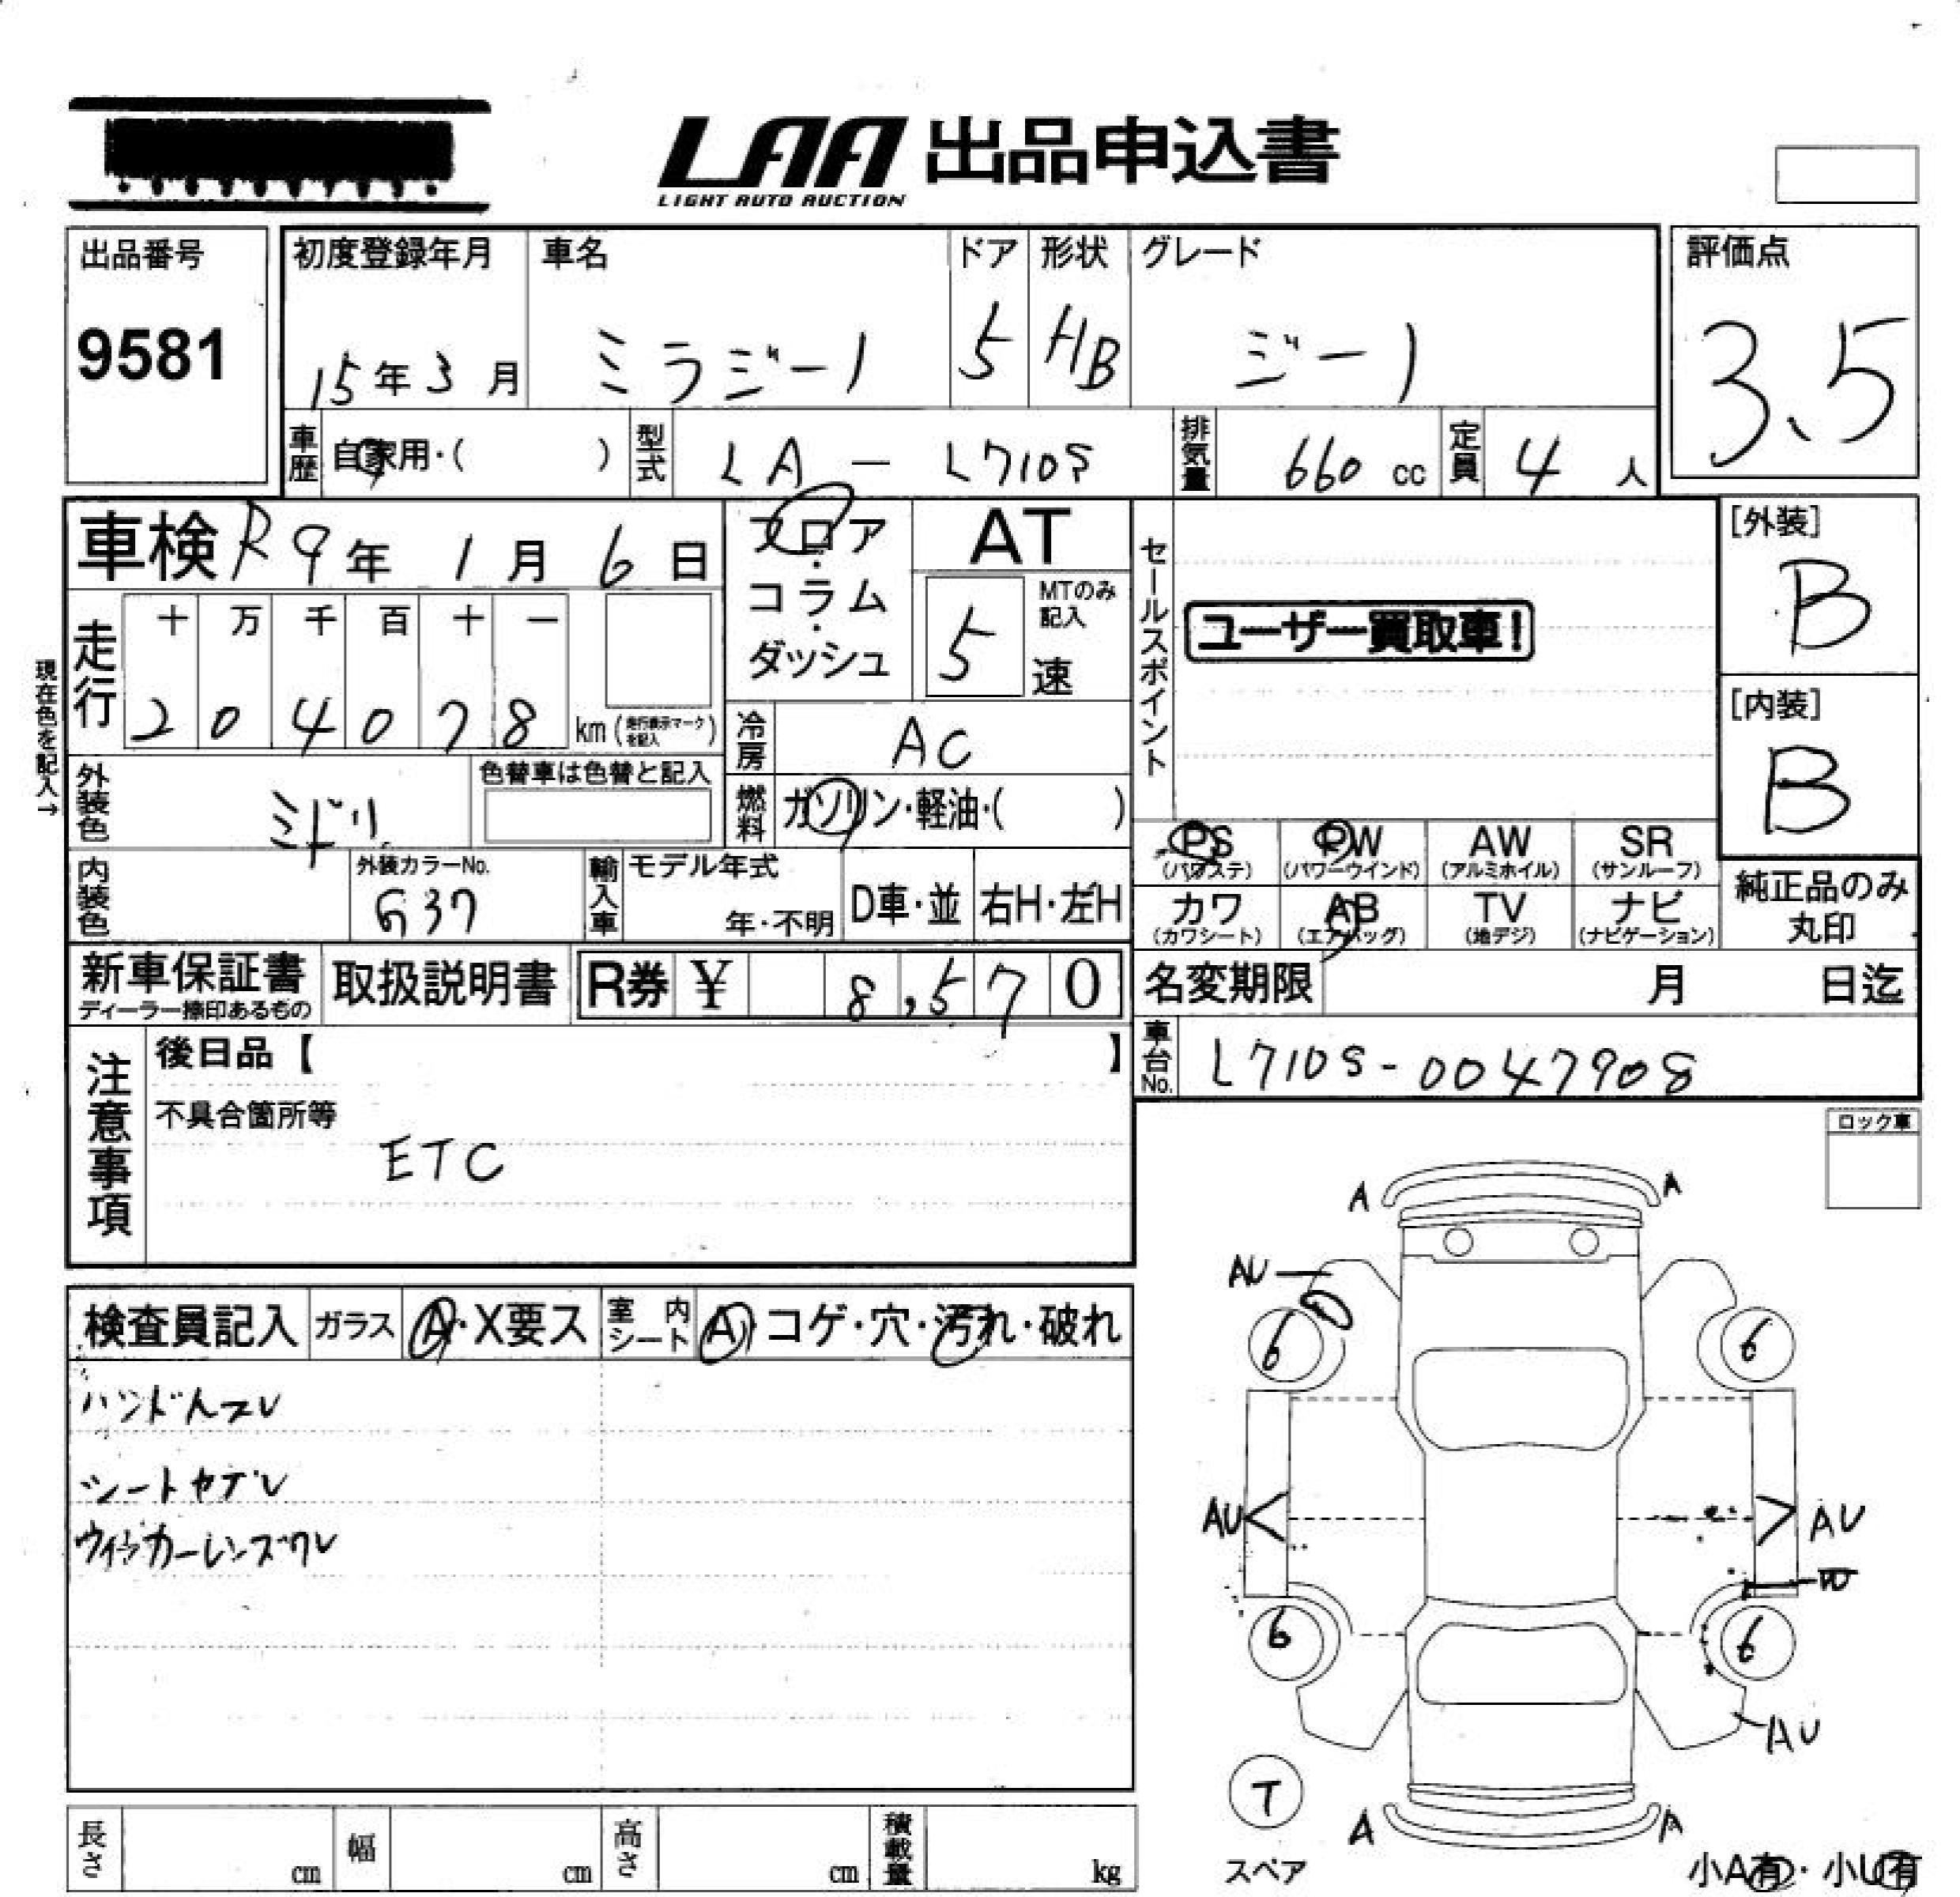 LAA 出品申込書
LIGHT AUTO AUCTION
出品番号
9581
初度登録年月
15年3月
車名
ミラジーノ
ドア
5
形状
HB
グレード
ジーノ
評価点
3.5
車歴
自家用・( )
型式
LA - L710S
排気量
660 cc
定員
4 人
車検 R9年1月6日
フロア・コラム・ダッシュ
AT
MTのみ記入
5 速
現在色を記入→
走行
十 万 千 百 十 一
2 0 4 0 7 8
km (走行表示マークを記入)
冷房
AC
セールスポイント
ユーザー買取車!
[外装]
B
[内装]
B
外装色
ミドリ
色替車は色替と記入
燃料
ガソリン・軽油・( )
PS (パワステ)
PW (パワーウインド)
AW (アルミホイル)
SR (サンルーフ)
内装色
外装カラーNo.
G37
輸入車
モデル年式
年・不明
D車・並
右H・左H
カワ (カワシート)
AB (エアバッグ)
TV (地デジ)
ナビ (ナビゲーション)
純正品のみ丸印
新車保証書
ディーラー捺印あるもの
取扱説明書
R券 ¥ 8,570
名変期限 月 日迄
車台No.
L710S-0047908
注意事項
後日品【 】
不具合箇所等
ETC
ロック車
検査員記入
ガラス
A・X要ス
室内シート
A・コゲ・穴・汚れ・破れ
ハンドルスレ
シートヤブレ
ウィンカーレンズワレ
A A
AU
6 6
AU AU
W
6 6
AU
T
スペア
A A
小A有・小U有
長さ cm
幅 cm
高さ cm
積載量 kg